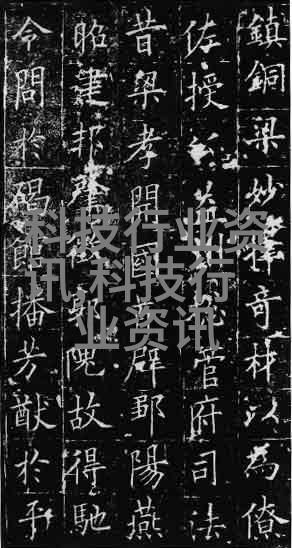 鎮銅梁妙擇奇材以為僚
佐授公益州總管府司法
昔梁孝開國首辟鄒陽燕
昭建邦肇徵郭隗故得馳
令問於碣館播芳猷於平
科技行业资
讯,科技行
业资讯